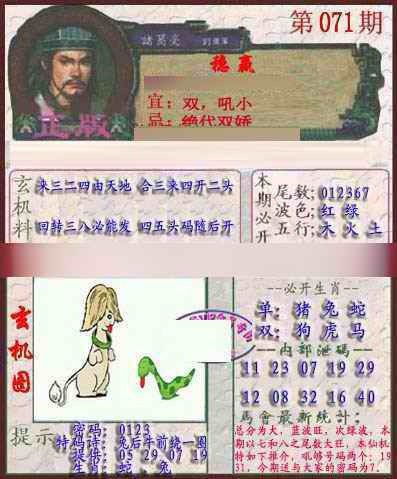 第071期
諸葛亮 劉備軍
稳赢
宜：双，吼小
忌：绝代双娇
正版
玄机料
来三二四由天地 合三来四开二头
回转三八必能发 四五头码随后开
本期必开
尾数：012367
波色：红 绿
五行：木 火 土
玄机图
必开生肖
单：猪 兔 蛇
双：狗 虎 马
内部泄码
11 23 07 19 29
12 08 32 16 40
馬會最新統計：
总分为大，蓝波旺，次绿波，本
期以七和八之尾数大旺，本仙机
特如下推介，吼够号码两个：19
31，今期送与大家的密码为7。
提示
密码：0123
特码诗：兔后牛前绕一圈
提接：05 29 07 19
生肖：蛇、兔